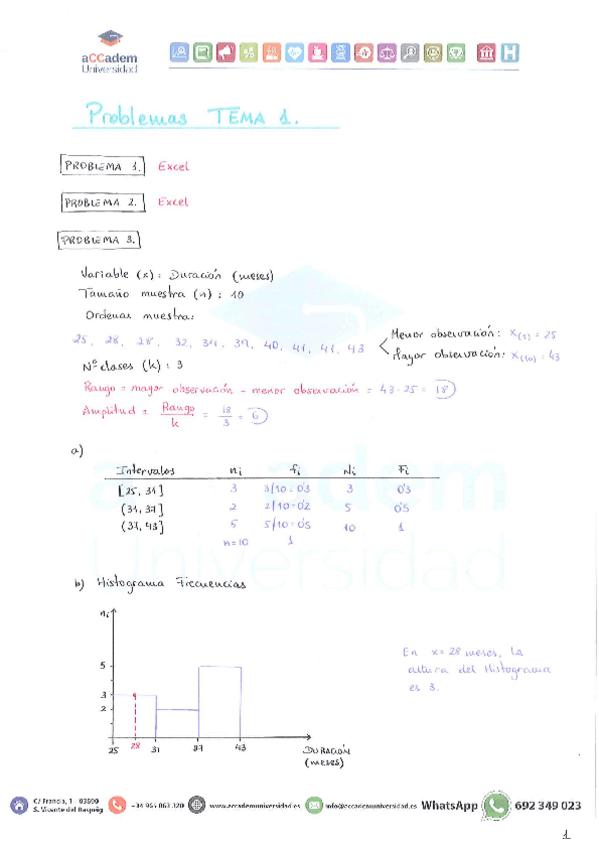 aCCadem
Universidad
Problemas TEMA 1.
PROBLEMA 1. Excel
PROBLEMA 2. Excel
PROBLEMA 3.
Variable (x): Duración (meses)
Tamaño muestra (n): 10
Ordenas muestra:
25, 28, 28, 32, 34, 39, 40, 41, 41, 43
Menor observación: x(1) = 25
Mayor observación: x(10) = 43
Nº clases (k): 3
Rango = mayor observación - menor observación = 43-25 = 18
Amplitud = Rango/k = 18/3 = 6
a)
Intervalos ni fi Ni Fi
[25, 31] 3 3/10=0'3 3 0'3
(31, 37] 2 2/10=0'2 5 0'5
(37, 43] 5 5/10=0'5 10 1
n=10 1
b) Histograma Frecuencias
ni
5
3
2
25 28 31 37 43
DURACIÓN
(meses)
En x=28 meses, la
altura del Histograma
es 3.
aCCadem
Universidad
C/ Francia, 1 - 03690
S. Vicente del Raspeig
+34 965 063 320
www.accademuniversidad.es
info@accademuniversidad.es
WhatsApp
692 349 023
1